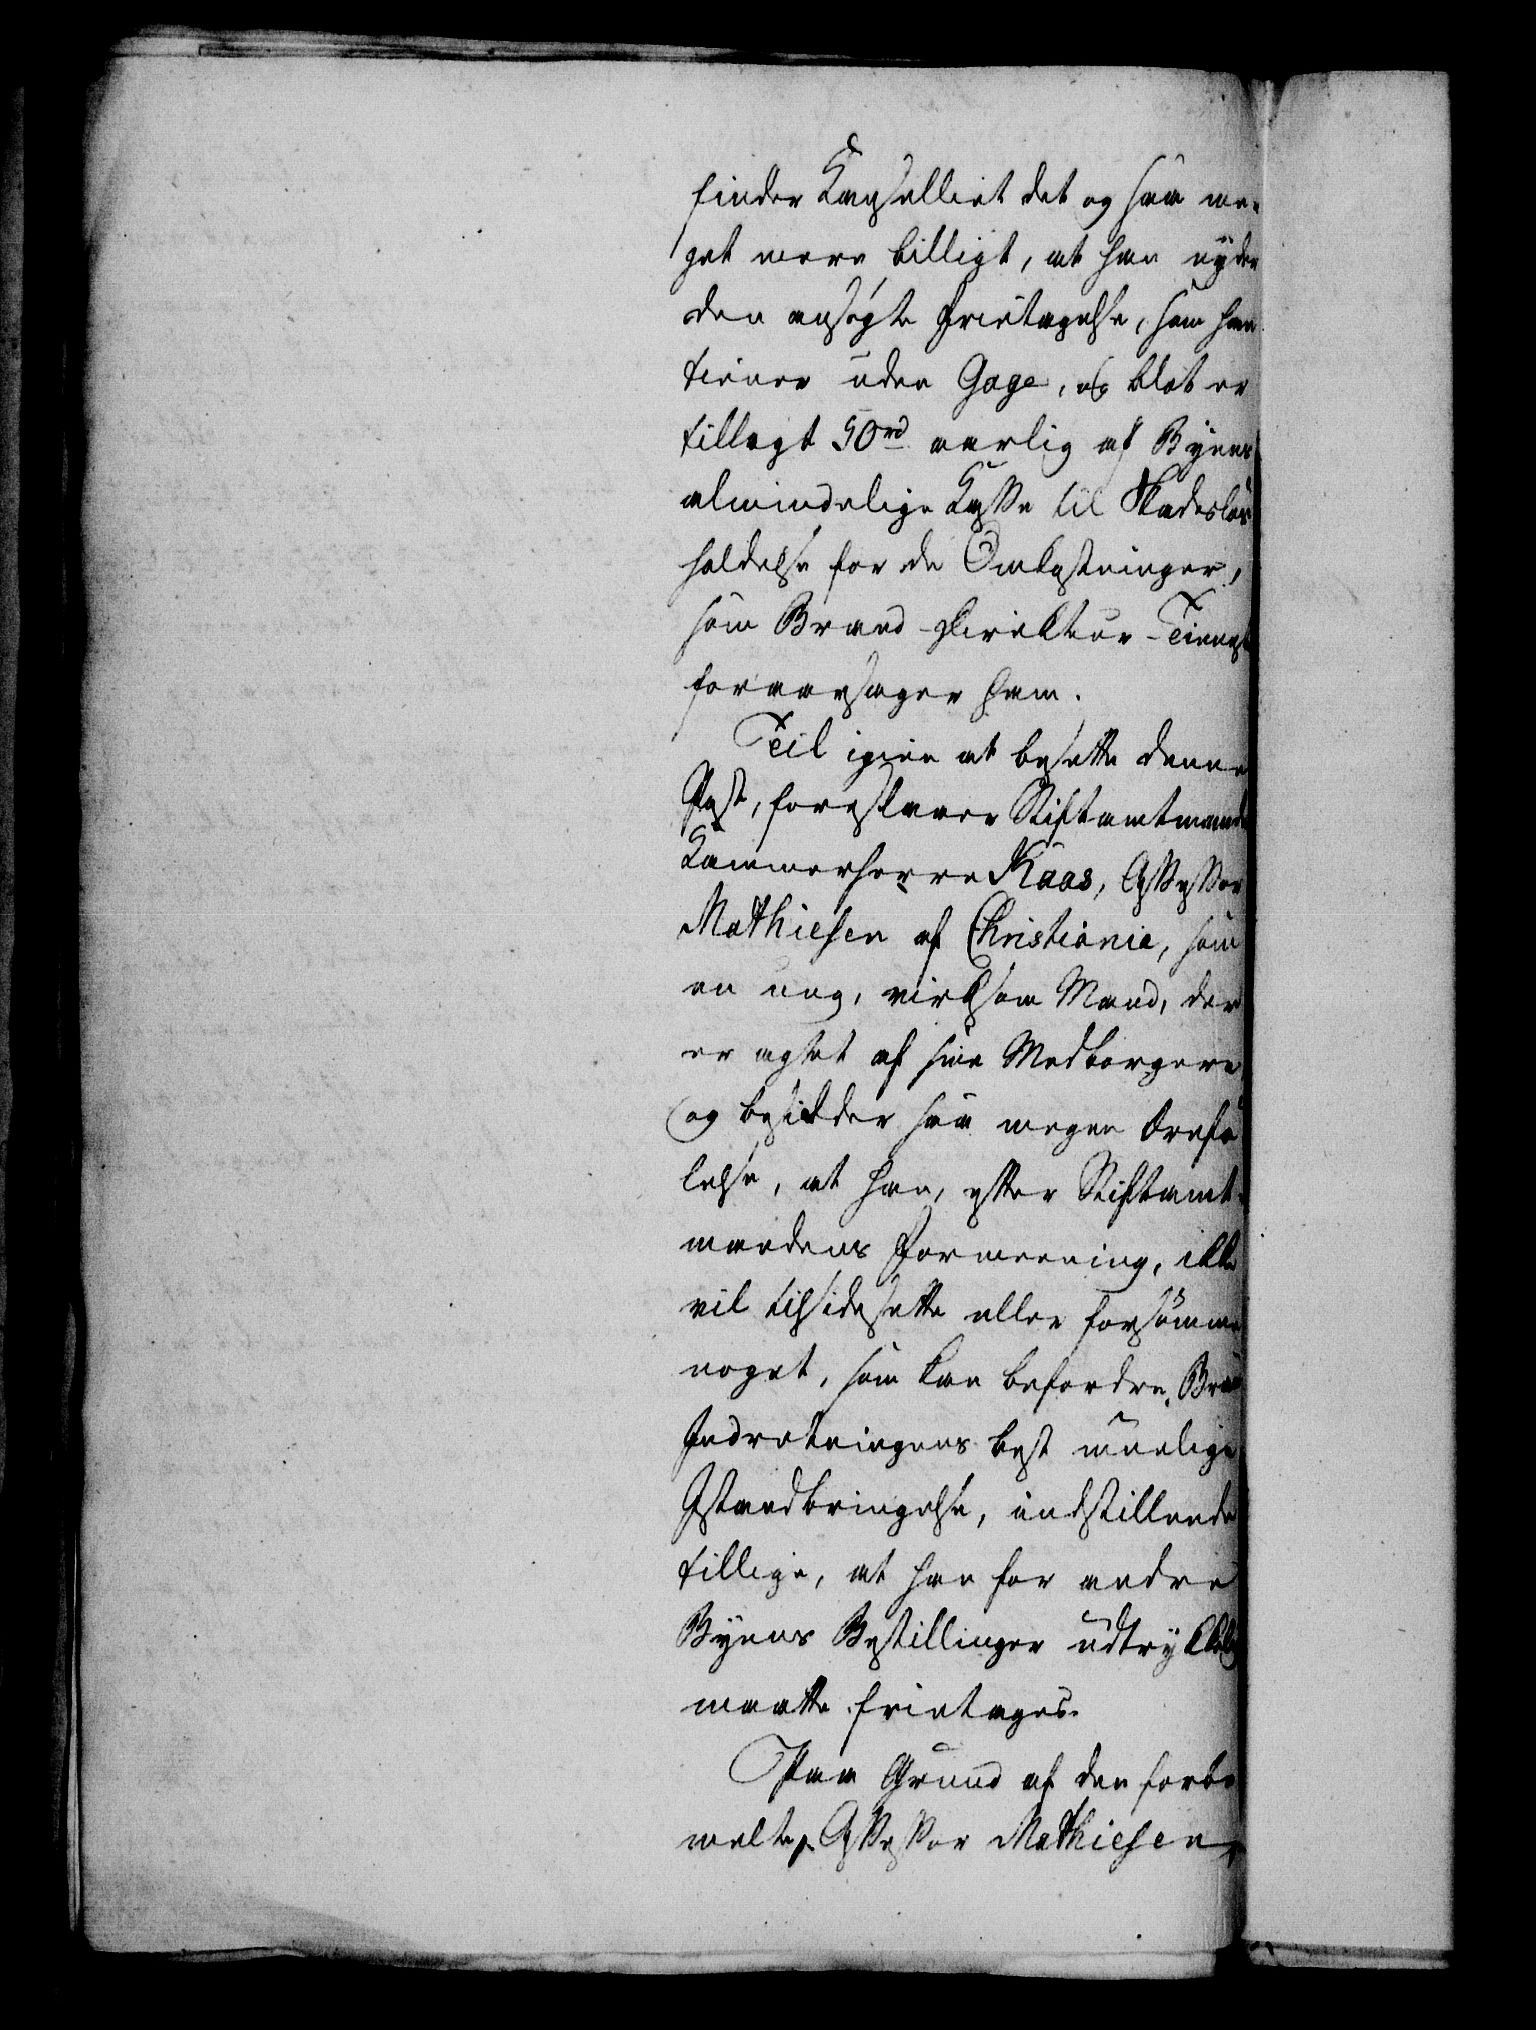 finder Kanselliet det og saa me-
get mere billigt, at han nyder
den ansøgte Fritagelse, som han
tiener uden Gage, og blot er
tillagt 50 rd aarlig af Byens
almindelige Kasse til Skadesløs
holdelse for de Omkostninger,
som Brand-Direkteur-Tienest
foraarsager ham.
Til igien at besette denne
Post, foreslaaer Stiftamtmand
Kammerherre Kaas, Assessor
Mathiesen af Christiania, som
en ung, virksom Mand, der
er agtet af sine Medborgere
og besidder saa megen Ærefø
lelse, at han, efter Stiftamt-
mandens Formeening, ikke
vil tilsidesette eller forsømme
noget, som kan befordre Bran
Indretningens best muelige
Istandbringelse, indstillende
tillige, at han for andre
Byens Bestillinger udtrykkelig
maatte fritages.
Paa Grund af den forbe
melte Assessor Mathiesen